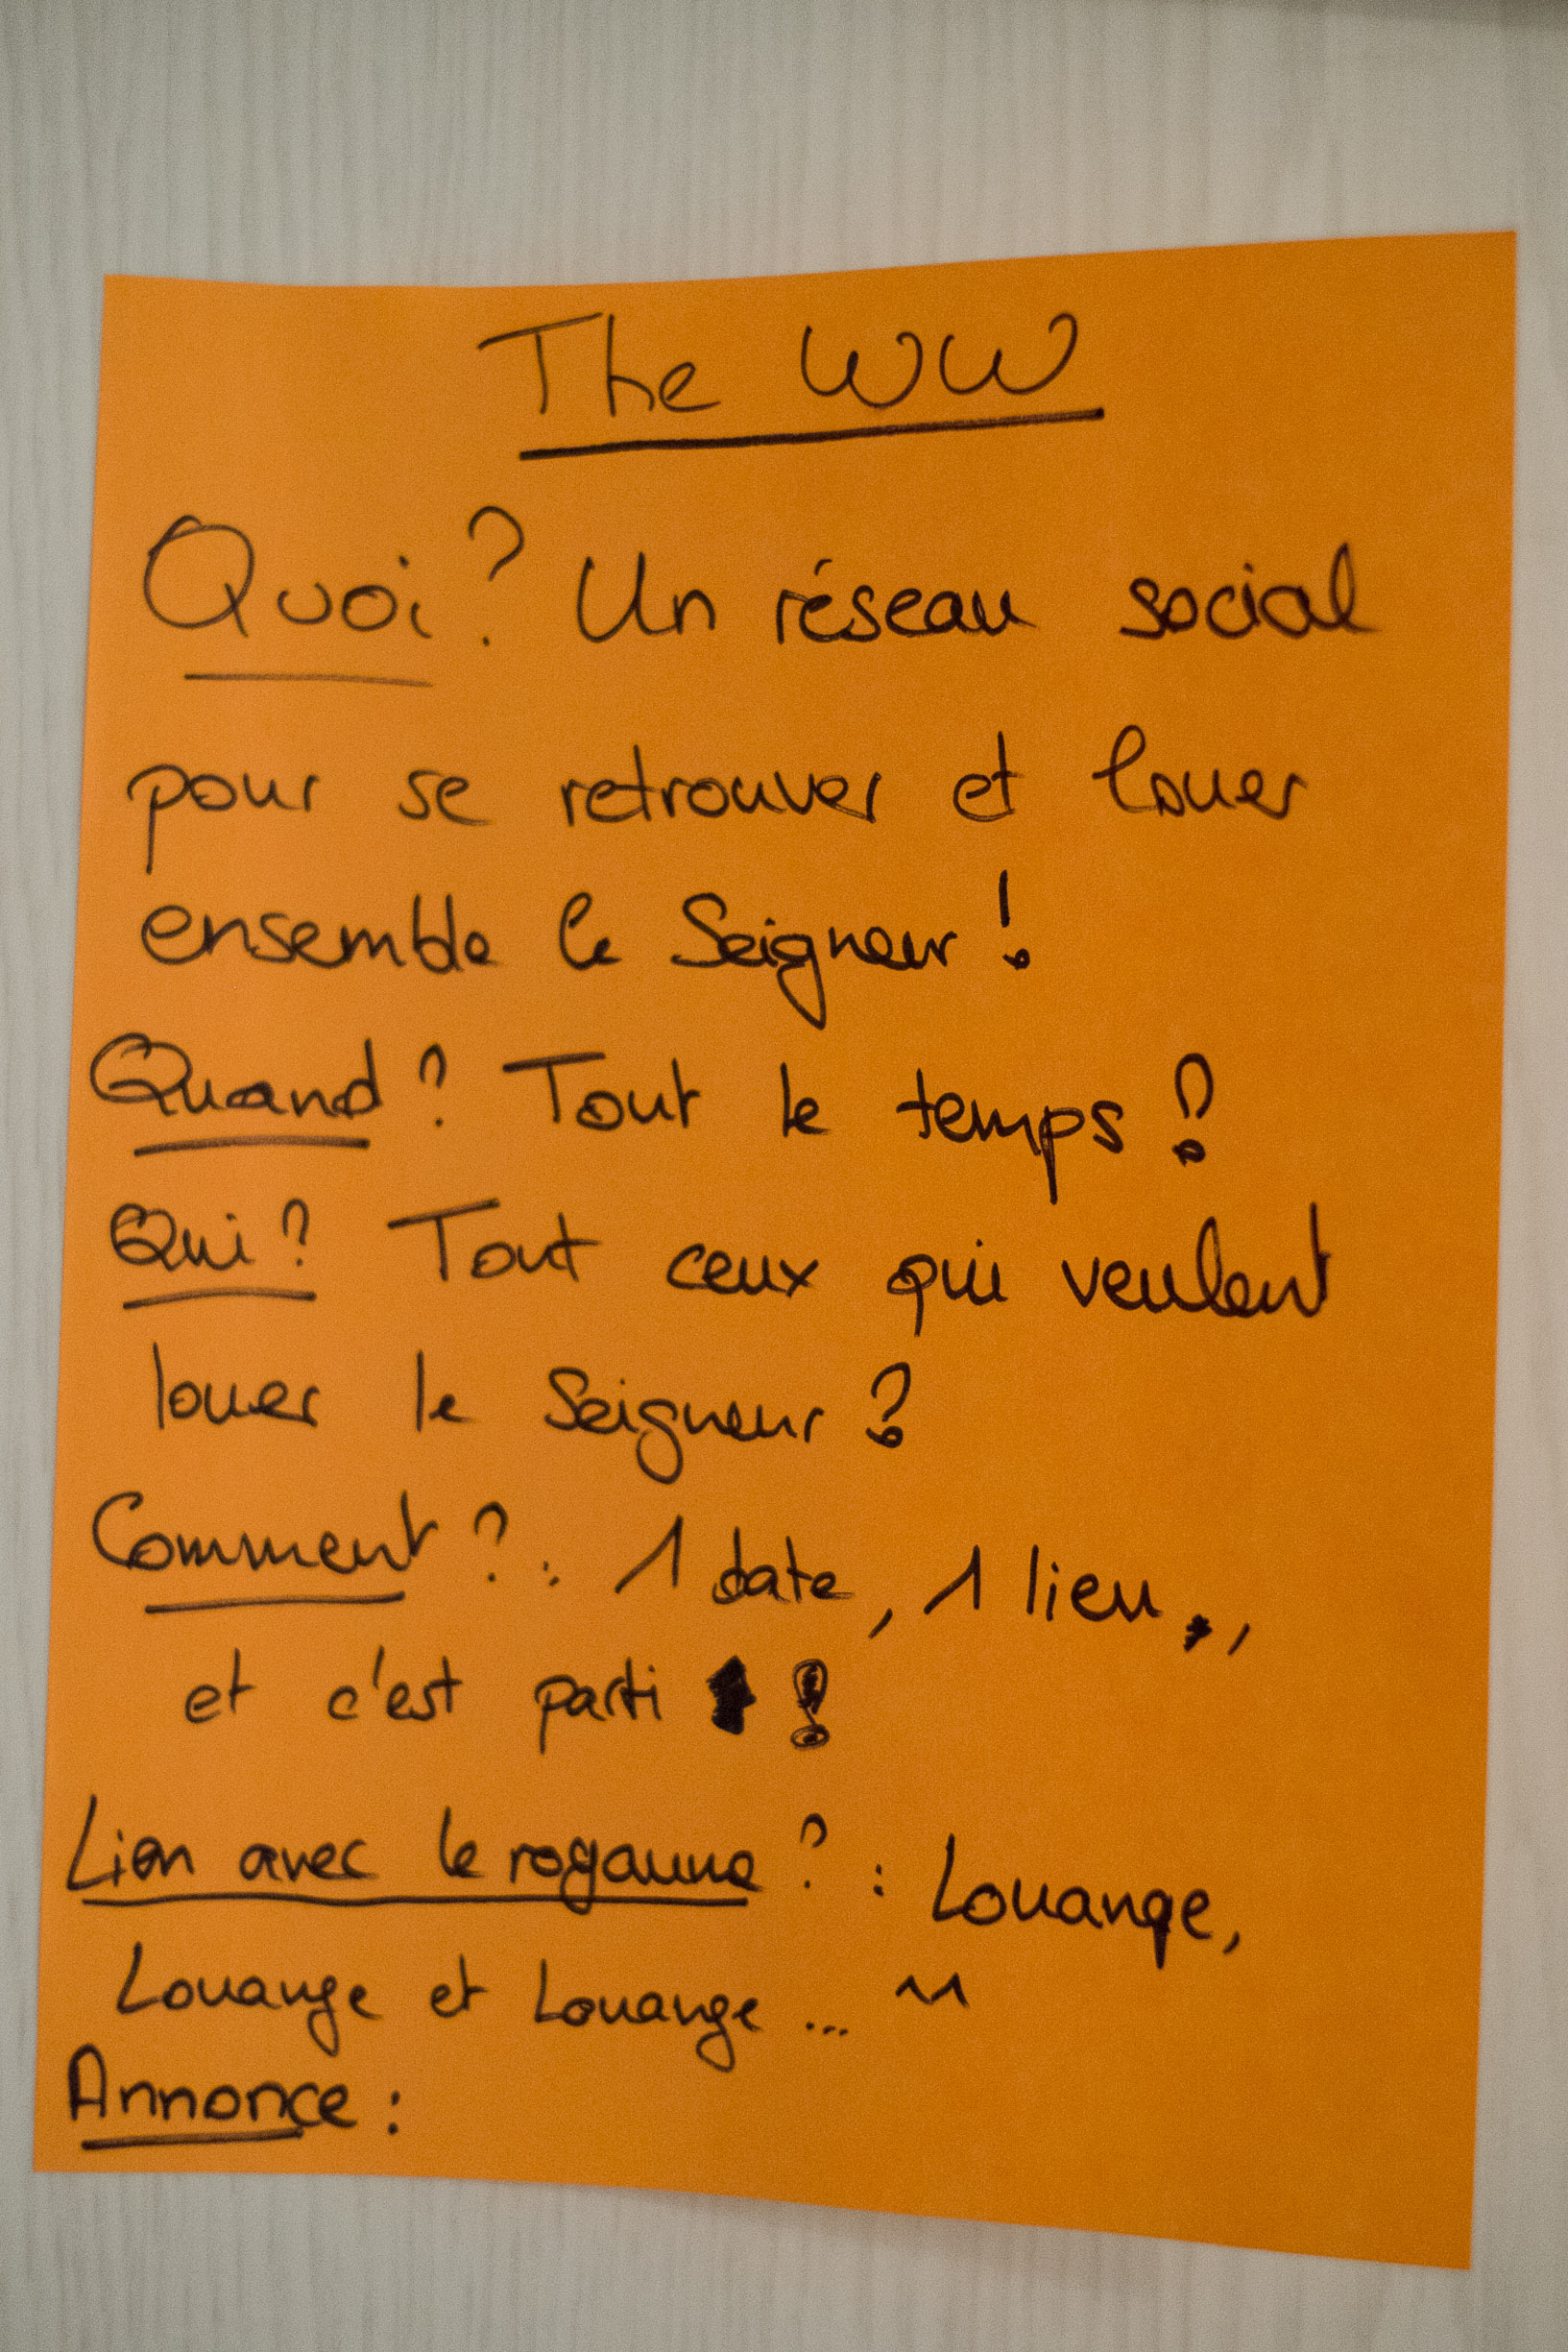 The WW
Quoi ? Un réseau social
pour se retrouver et louer
ensemble le Seigneur !
Quand ? Tout le temps ?
Qui ? Tout ceux qui veulent
louer le Seigneur ?
Comment ? : 1 date, 1 lieu,
et c'est parti !
Lien avec le royaume ? : Louange,
Louange et Louange ... ^^
Annonce :